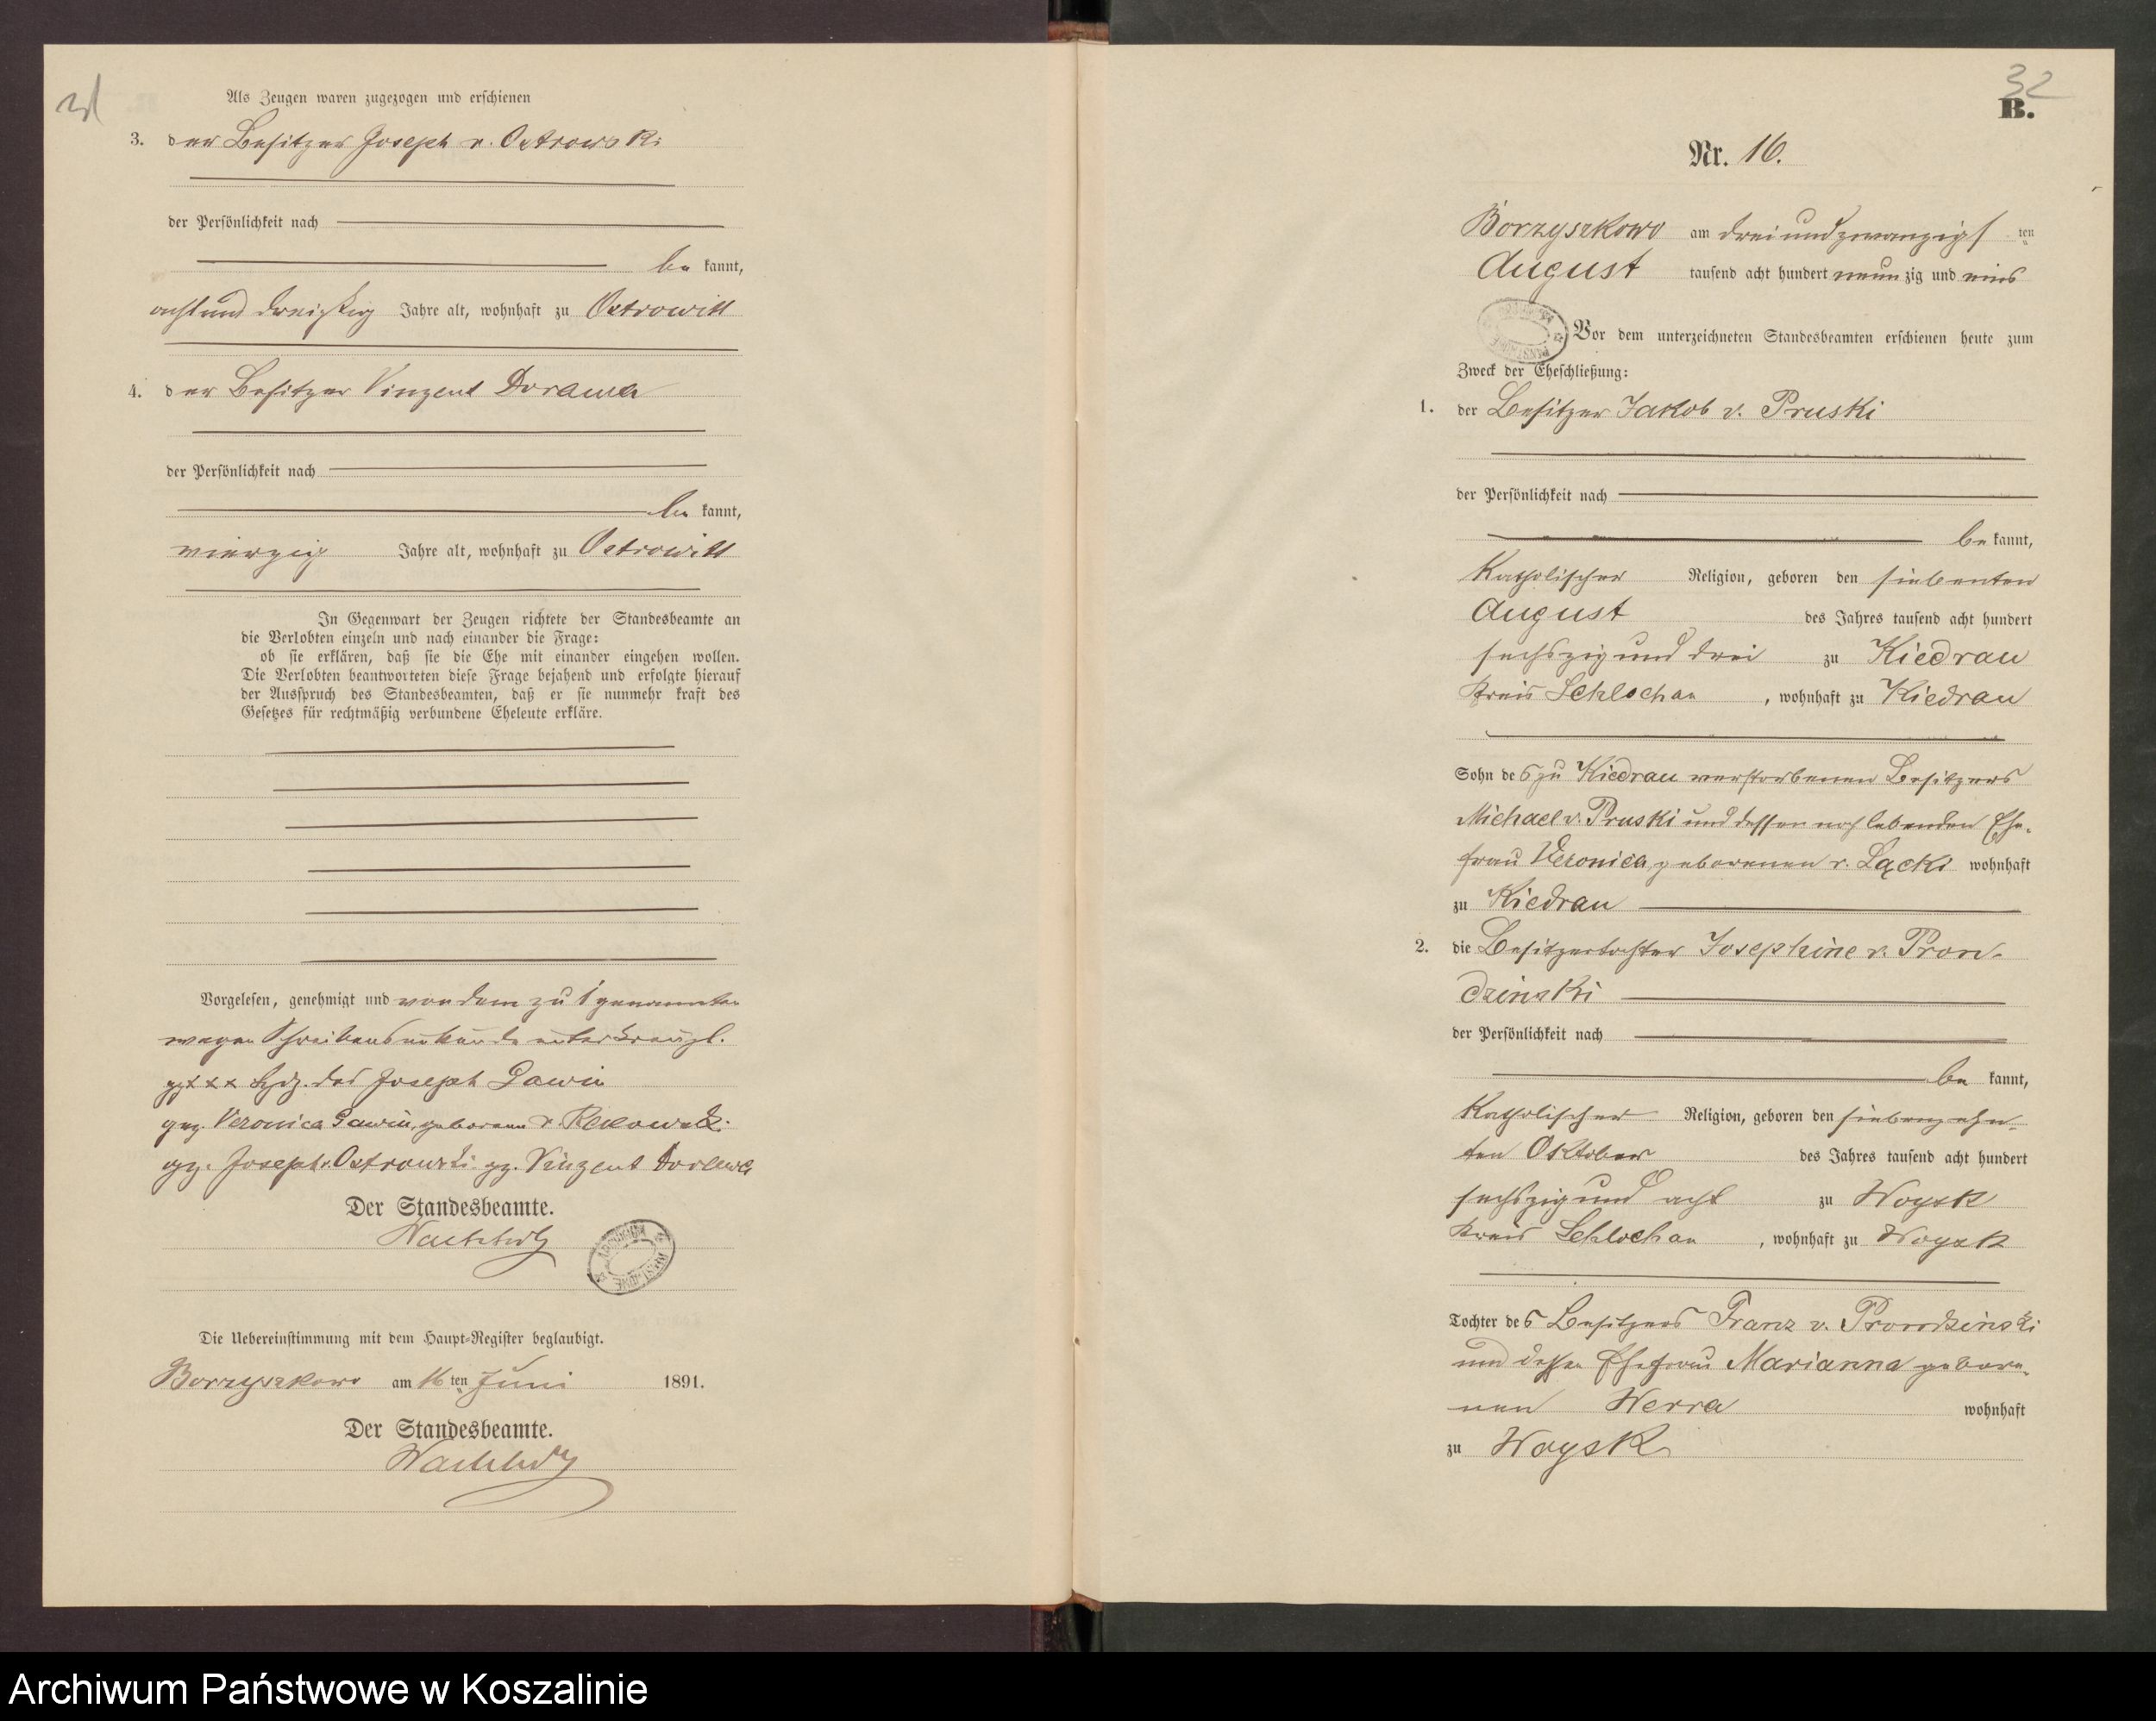 Als Zeugen waren zugezogen und erschienen
3. der Besitzer Joseph v. Ostrowski
der Persönlichkeit nach
be kannt,
achtund dreißig Jahre alt, wohnhaft zu Ostrowitt
4. der Besitzer Vinzent Dorawa
der Persönlichkeit nach
be kannt,
vierzig Jahre alt, wohnhaft zu Ostrowitt
In Gegenwart der Zeugen richtete der Standesbeamte an
die Verlobten einzeln und nach einander die Frage:
ob sie erklären, daß sie die Ehe mit einander eingehen wollen.
Die Verlobten beantworteten diese Frage bejahend und erfolgte hierauf
der Ausspruch des Standesbeamten, daß er sie nunmehr kraft des
Gesetzes für rechtmäßig verbundene Eheleute erkläre.
Vorgelesen, genehmigt und von dem zu 1 genannten
wegen Schreibensunkunde unterkreuzt.
gz xxx Hdz. des Joseph Gawin
gez. Veronica Gawin, geborene v. Rekowski.
gz. Joseph v. Ostrowski gz. Vinzent Dorawa
Der Standesbeamte.
ARCHIWUM PAŃSTWOWE
Die Uebereinstimmung mit dem Haupt-Register beglaubigt.
Borzyszkowo am 16 ten Juni 1891.
Der Standesbeamte.
32
B.
Nr. 16.
Borzyszkowo am dreiundzwanzigs ten
August tausend acht hundert neun zig und eins
ARCHIWUM PAŃSTWOWE
Vor dem unterzeichneten Standesbeamten erschienen heute zum
Zweck der Eheschließung:
1. der Besitzer Jakob v. Pruski
der Persönlichkeit nach
be kannt,
Katholischer Religion, geboren den siebenten
August des Jahres tausend acht hundert
sechszig und drei zu Kiedrau
Kreis Schlochau, wohnhaft zu Kiedrau
Sohn des zu Kiedrau verstorbenen Besitzers
Michael v. Pruski und dessen noch lebenden Ehe-
frau Veronica, geborenen v. Lącki wohnhaft
zu Kiedrau
2. die Besitzertochter Josephine v. Pron-
dzinski
der Persönlichkeit nach
be kannt,
Katholischer Religion, geboren den siebenzehn-
ten Oktober des Jahres tausend acht hundert
sechszig und acht zu Woysk
Kreis Schlochau, wohnhaft zu Woysk
Tochter des Besitzers Franz v. Prondzinski
und dessen Ehefrau Marianna gebore-
nen Werra wohnhaft
zu Woysk
Archiwum Państwowe w Koszalinie